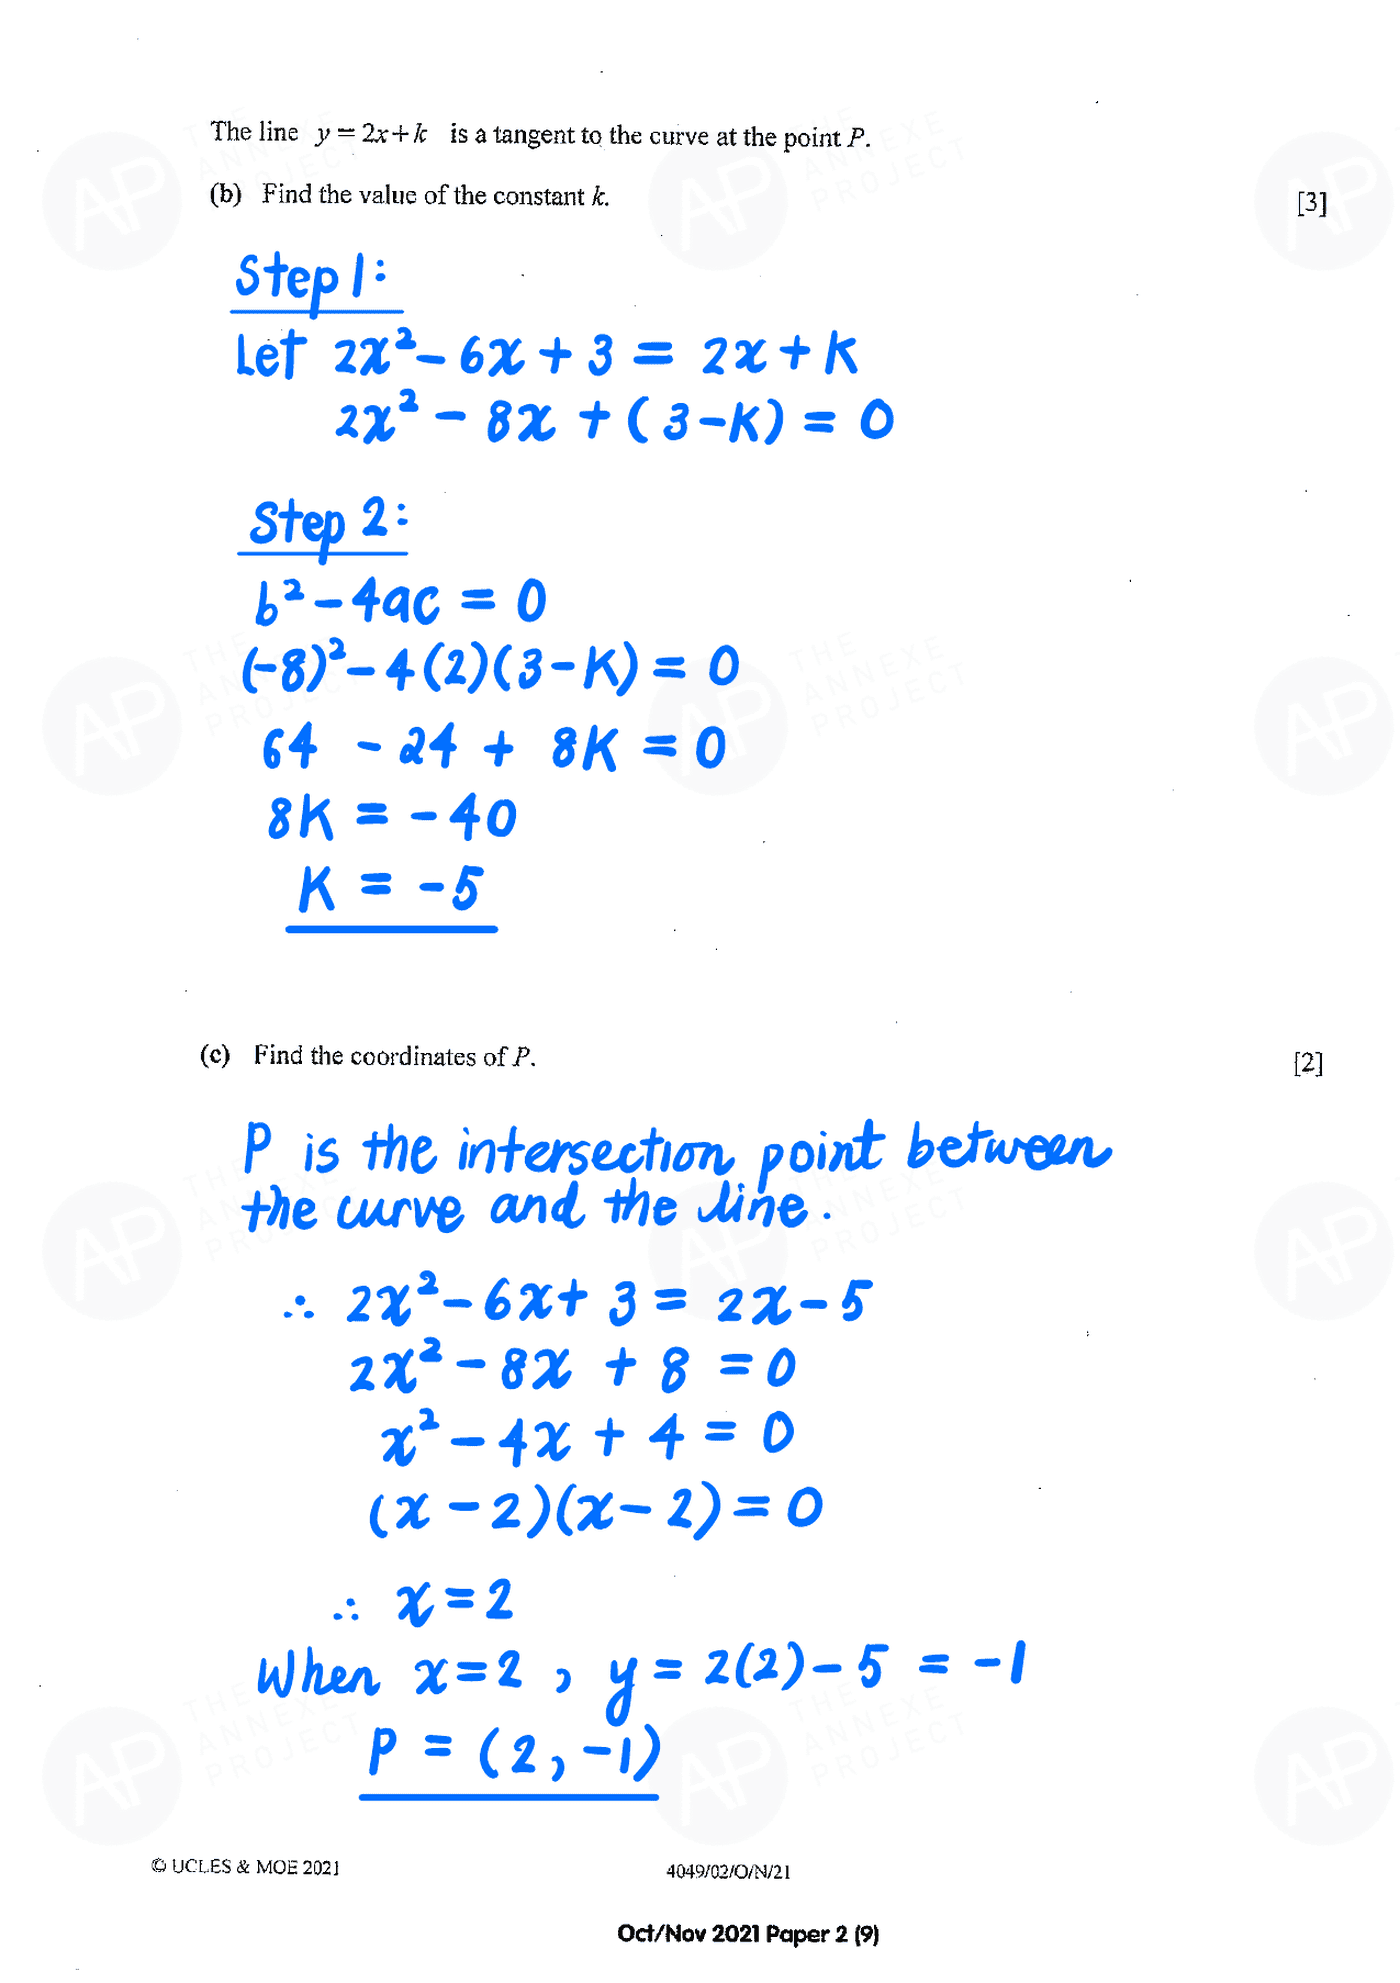 The line y = 2x + k is a tangent to the curve at the point P.
(b) Find the value of the constant k. [3]
Step 1:
Let 2x² - 6x + 3 = 2x + K
2x² - 8x + (3-K) = 0
Step 2:
b² - 4ac = 0
(-8)² - 4(2)(3-K) = 0
64 - 24 + 8K = 0
8K = -40
K = -5
(c) Find the coordinates of P. [2]
P is the intersection point between
the curve and the line.
∴ 2x² - 6x + 3 = 2x - 5
2x² - 8x + 8 = 0
x² - 4x + 4 = 0
(x - 2)(x - 2) = 0
∴ x = 2
When x = 2, y = 2(2) - 5 = -1
P = (2, -1)
© UCLES & MOE 2021
4049/02/O/N/21
Oct/Nov 2021 Paper 2 (9)
AP THE ANNEXE PROJECT